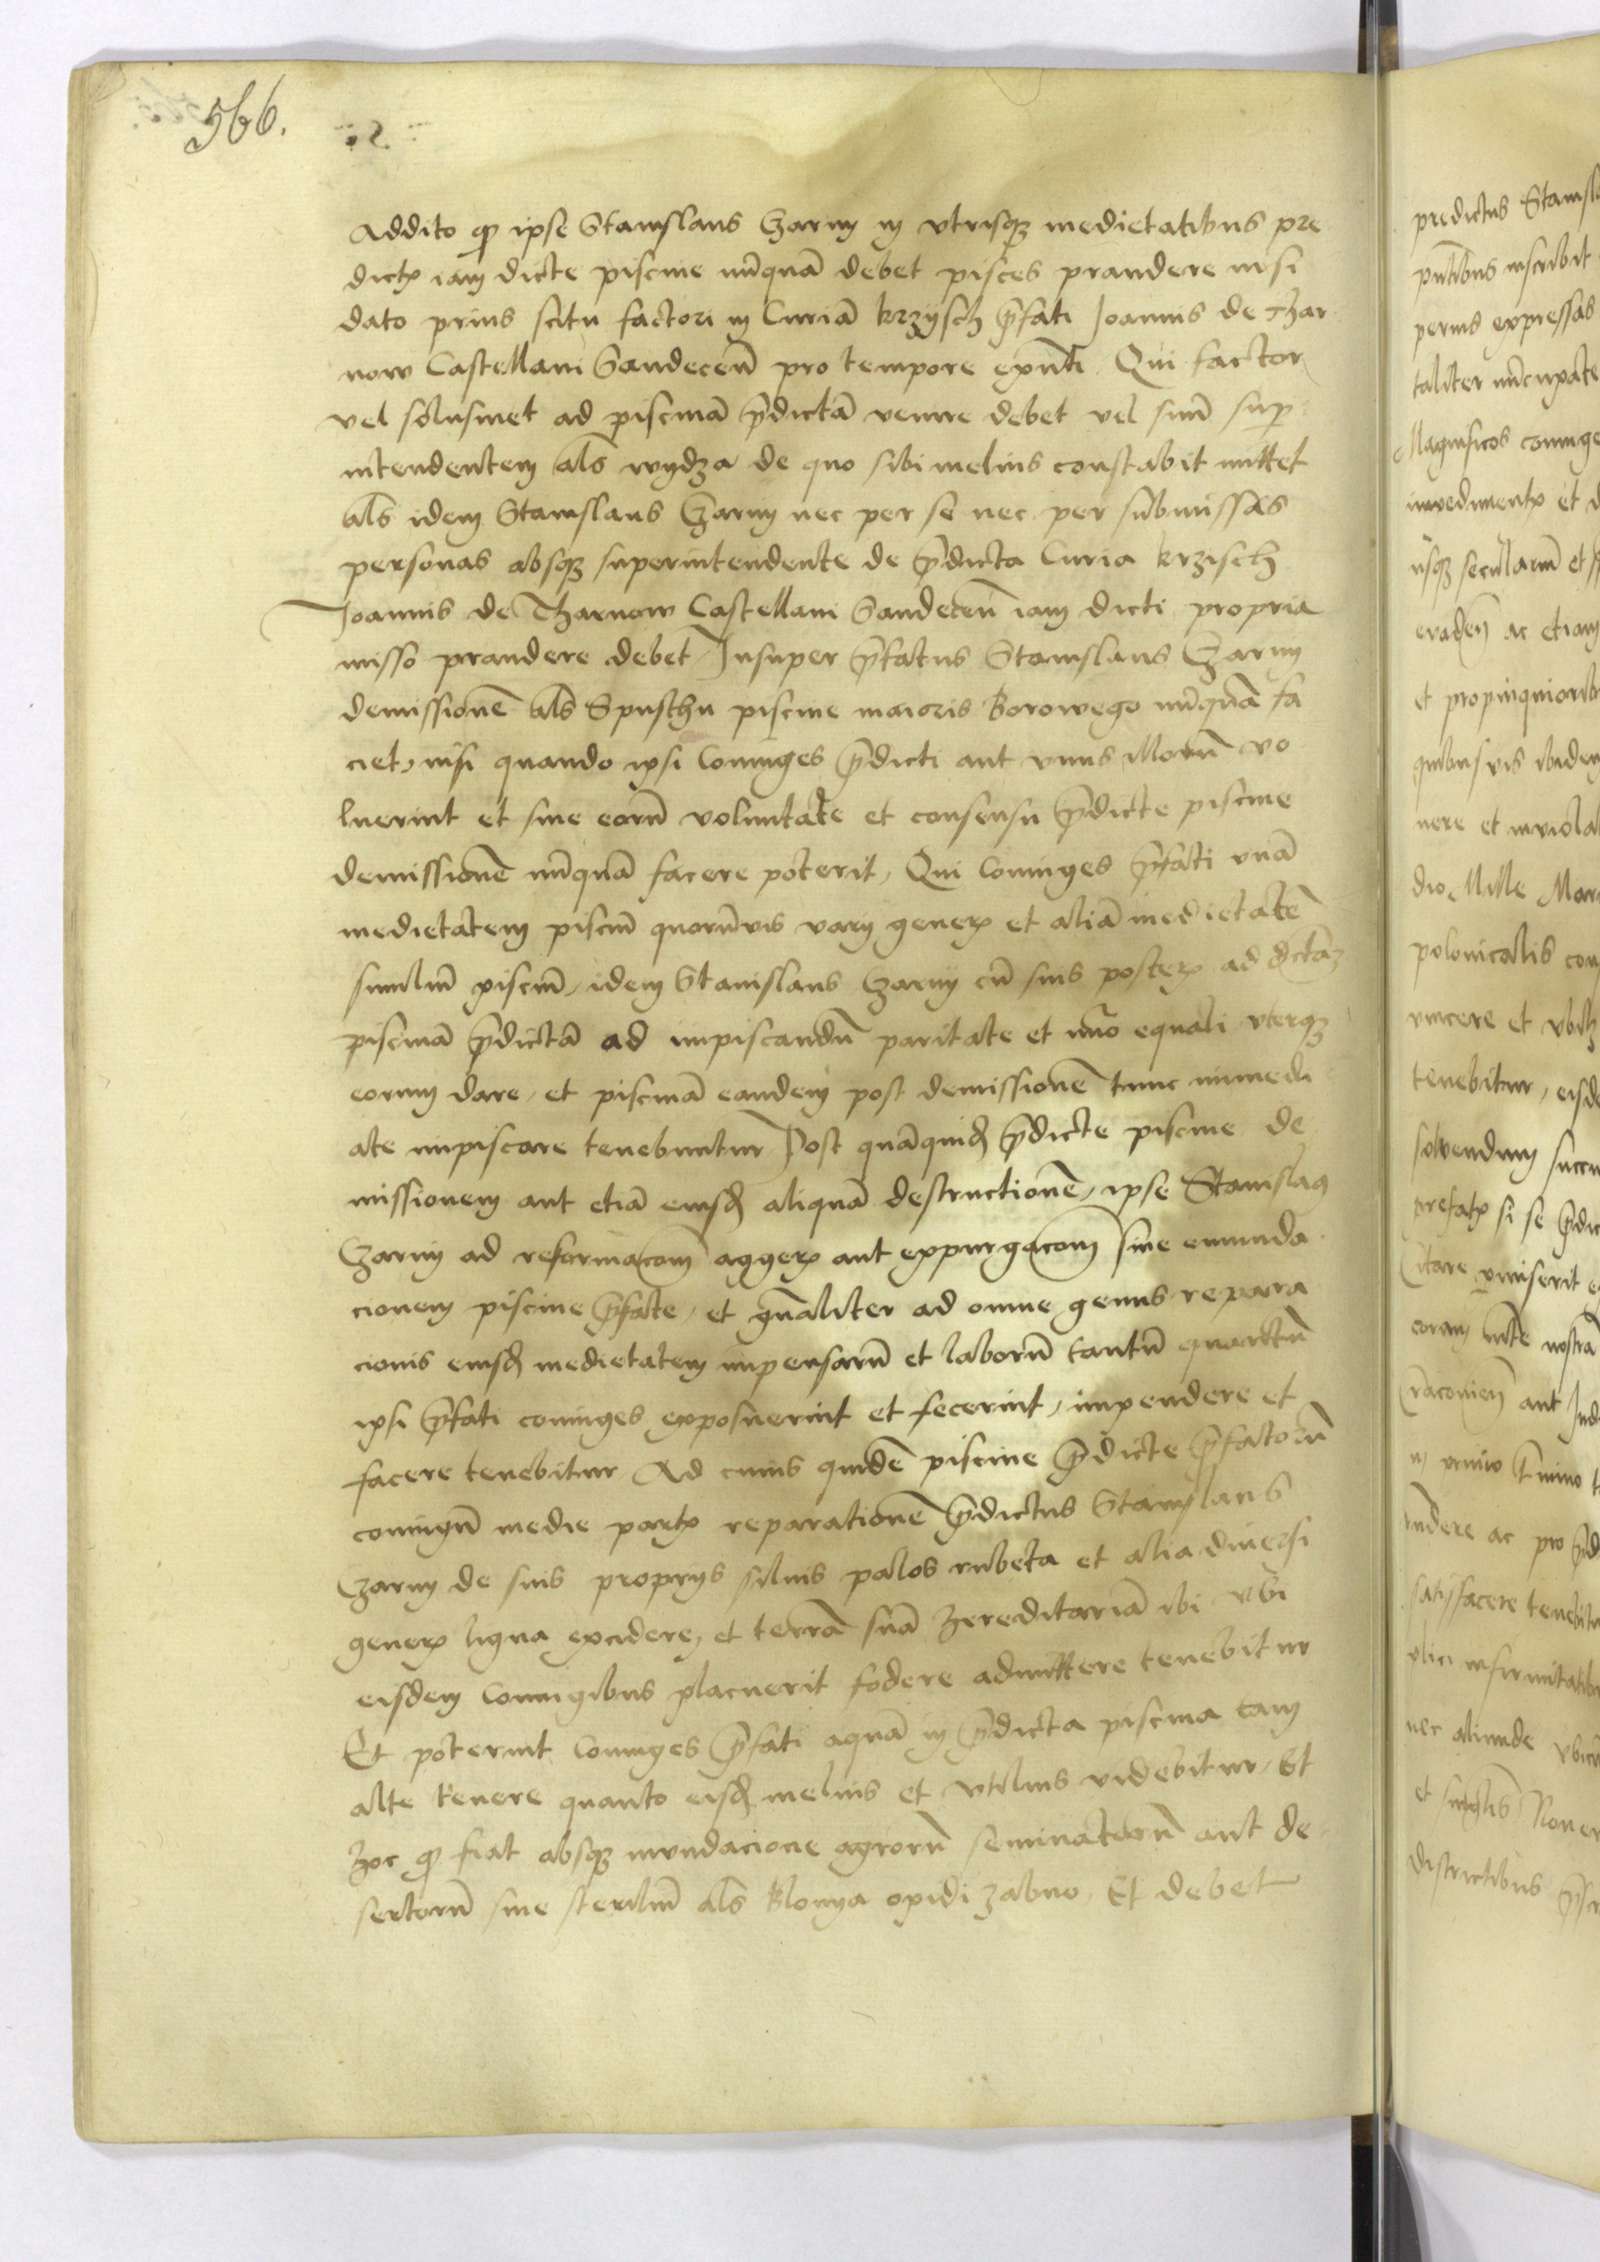 566.
Addito qp ipse Stanislaus Czarny in utrisqz medietatibus pre
dictis iam dicte piscine nūquā debet pisces prandere nisi
dato prius scitu factori in Curiā krzijsch p̄fati Joannis de Thar
now Castellani Sandeceñ pro tempore exūti Qui factor
vel solusmet ad piscinā p̄dictā venire debet vel suū sup
intendentem als wijdza de quo sibi melius constabit mittet
als idem Stanislaus Czarny nec per se nec per submissas
personas absqz superintendente de p̄dicta Curia krzisch
Joannis de Tharnow Castellani Sandeceñ iam dicti propria
misso prandere debet Insuper p̄fatus Stanislaus Czarny
demissionē als Spusthu piscine maioris Borowego nūquā fa
ciet, nisi quando ipsi Coniuges p̄dicti aut unus illorū vo
luerint et sine eorū voluntate et consensu p̄dicte piscine
demissionē nūquā facere poterit, Qui Coniuges p̄fati unā
medietatem pisciū quorūvis varij generis et aliā medietatē
similiū pisciū, idem Stanislaus Czarny cū suis posteris ad dictāz
piscinā p̄dictā ad impiscandū paritate et nūo equali uterqz
eorum dare, et piscinā eandem post demissionē tunc immedi
ate impiscare tenebuntur Post quāquidē p̄dicte piscine de
missionem aut etiā eiusd aliquā destructionē, ipse Stanislaus
Czarny ad reformacōm aggeris aut expurgacōm sive emunda
cionem piscine p̄fate, et gn̄aliter ad omne genus repara
cionis eiusd medietatem impensarū et laborū tantū quantū
ipsi p̄fati coniuges exposuerint et fecerint, impendere et
facere tenebitur Ad cuius quidē piscine p̄dicte p̄fatorū
coniugū medie partis reparationē p̄dictus Stanislaus
Czarny de suis proprijs silvis palos rubeta et alia diversi
generis ligna excidere, et terrā suā hereditariā ibi ubi
eisdem Coniugibus placuerit fodere admittere tenebitur
Et poterint Coniuges p̄fati aquā in p̄dicta piscina tam
alte tenere quanto eisd melius et utilius videbitur, Et
hoc qp fiat absqz inundacione agrorū seminatorū aut de
sertorū sive steriliū als Blonya opidi Zabno, Et debet
predictus Stanisla
pūtibus inscribit
perius expressas
taliter nūcupate
Magnificos coniuge
impedimentis et
usqz secularīū et
evadeñ ac etiam
et propinquiorib
quibusvis ibidem
nere et inviola
dio, Mille Mar
polonicalis con
vincere et ubiliz
tenebitur, eisde
solvendum succu
prefatis si se p̄dic
citare p̄miserit
coram nostrā
Cracovieñ aut Jud
primo t̄mino
ndere ac pro p̄d
satisfacere tenebitu
plici infirmitatibu
nec aliunde ubicū
et singulis Roner
districtibus p̄scr